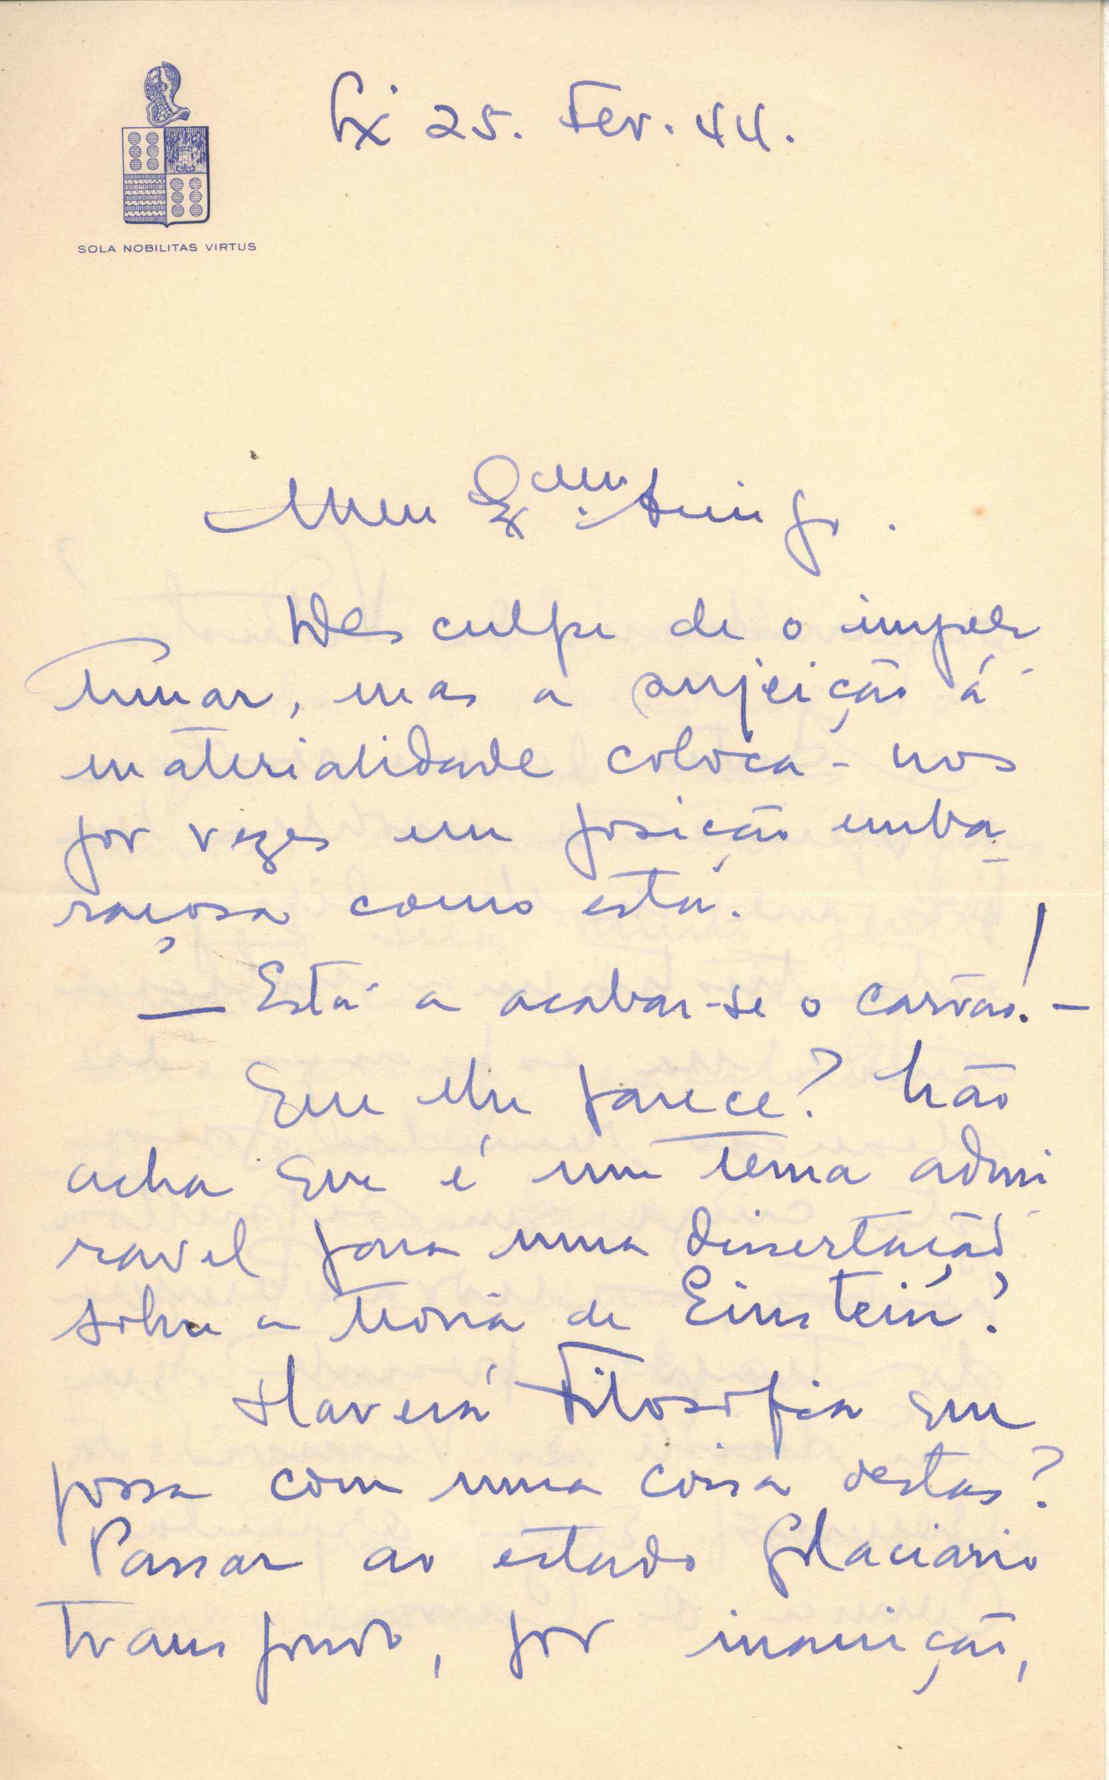 SOLA NOBILITAS VIRTUS
Lx 25. Fev. 44.
Meu Excmo. Amigo.
Desculpe de o impor-
tunar, mas a sujeição á
materialidade coloca-nos
por vezes em posição emba-
raçosa como está.
— Está a acabar-se o carvão! —
Que lhe parece? Não
acha que é um tema admi-
ravel para uma dissertação
sobre a teoria de Einstein?
Haverá Filosofia que
possa com uma coisa destas?
Passar ao estado Glaciario
transpondo, por inanição,